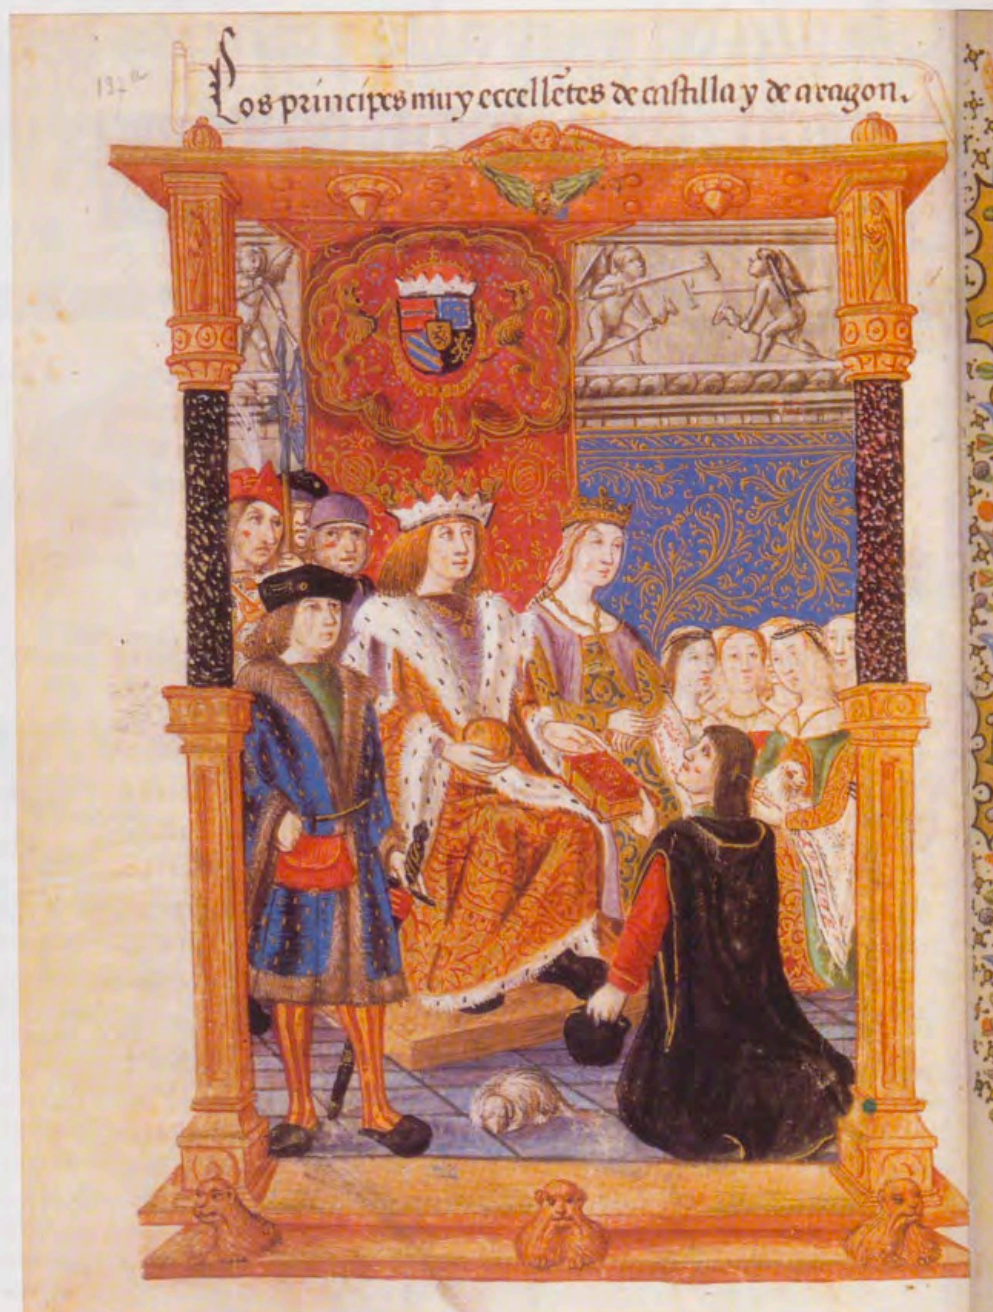 Los principes muy eccellētes de castilla y de aragon.